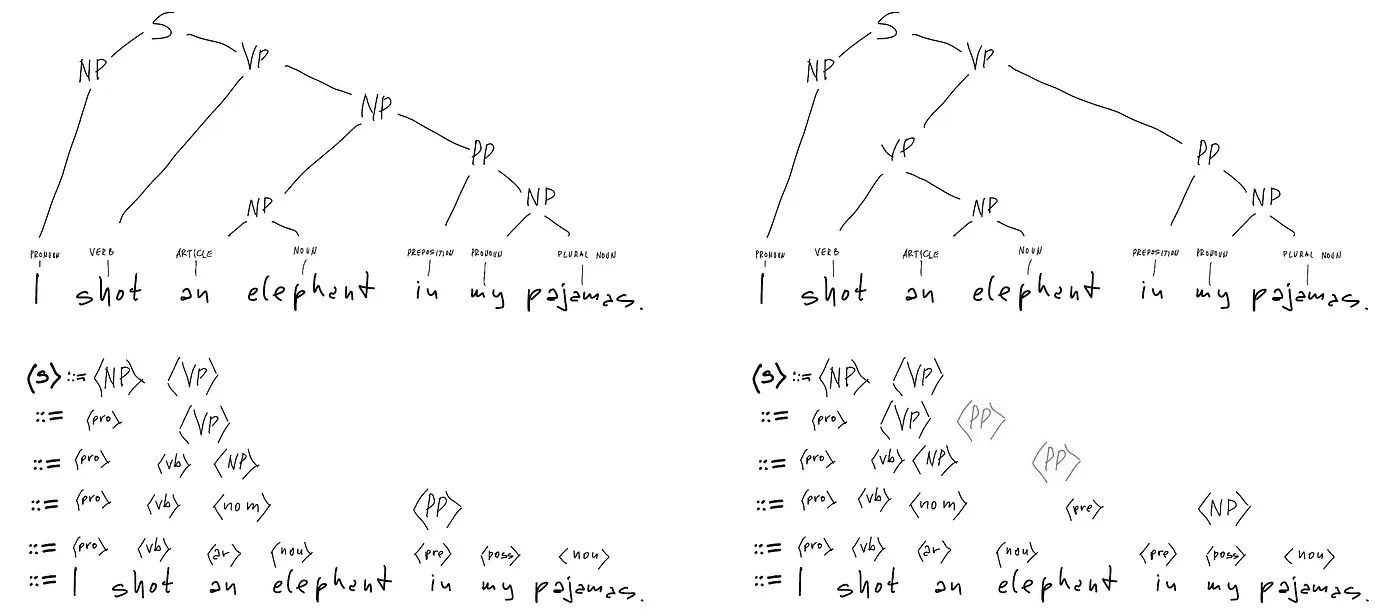 S
NP VP
NP
PP
NP NP
PRONOUN VERB ARTICLE NOUN PREPOSITION PRONOUN PLURAL NOUN
I shot an elephant in my pajamas.
⟨S⟩ ::= ⟨NP⟩ ⟨VP⟩
::= ⟨pro⟩ ⟨VP⟩
::= ⟨pro⟩ ⟨vb⟩ ⟨NP⟩
::= ⟨pro⟩ ⟨vb⟩ ⟨nom⟩ ⟨PP⟩
::= ⟨pro⟩ ⟨vb⟩ ⟨ar⟩ ⟨nou⟩ ⟨pre⟩ ⟨poss⟩ ⟨nou⟩
::= I shot an elephant in my pajamas.
S
NP VP
VP PP
NP NP
PRONOUN VERB ARTICLE NOUN PREPOSITION PRONOUN PLURAL NOUN
I shot an elephant in my pajamas.
⟨S⟩ ::= ⟨NP⟩ ⟨VP⟩
::= ⟨pro⟩ ⟨VP⟩ ⟨PP⟩
::= ⟨pro⟩ ⟨vb⟩ ⟨NP⟩ ⟨PP⟩
::= ⟨pro⟩ ⟨vb⟩ ⟨nom⟩ ⟨pre⟩ ⟨NP⟩
::= ⟨pro⟩ ⟨vb⟩ ⟨ar⟩ ⟨nou⟩ ⟨pre⟩ ⟨poss⟩ ⟨nou⟩
::= I shot an elephant in my pajamas.